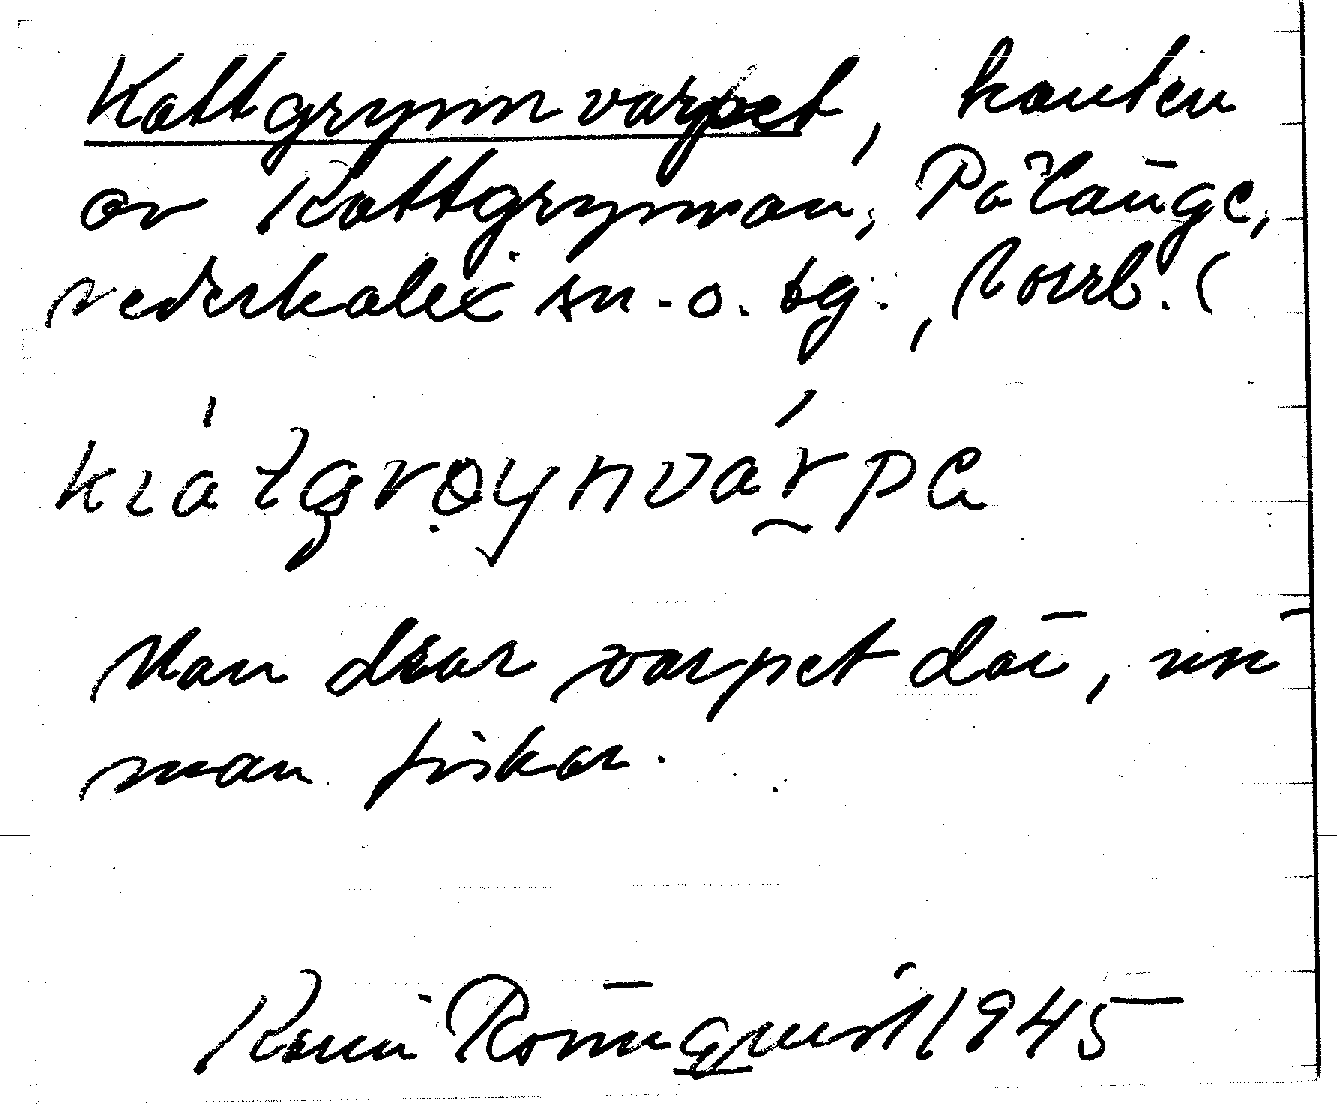 Kattgrynnvarpet, kanten
av Kattgrynnan, Pålänge,
Nederkalix sn. o. tg., Norrb. (
kıátgrøynvárpa
Man drar varpet där, när
man fiskar.
Rönnqvist 1945